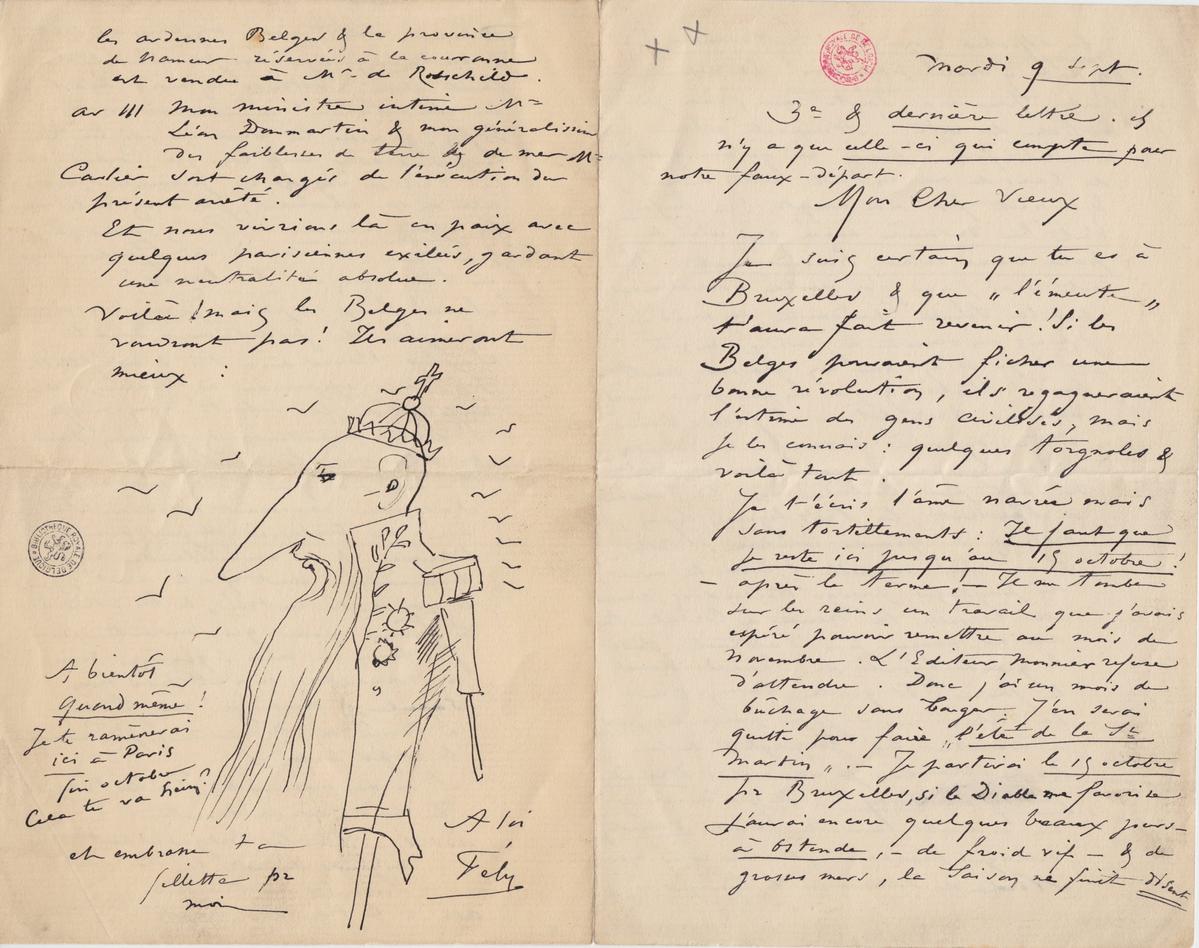 Mardi 9 Sept.
3e & dernière lettre. il
n'y a que celle-ci qui compte pour
notre faux-départ.
Mon Cher Vieux
Je suis certain que tu es à
Bruxelles & que „l'émeute„
t'aura fait revenir! Si les
Belges pouvaient ficher une
bonne révolution, ils regagneraient
l'estime des gens civilisés, mais
je les connais: quelques torgnoles &
voilà tout.
Je t'écris l'âme navrée mais
sans tortillements: Il faut que
je reste ici jusqu'au 15 octobre!
– après le terme! – Il me tombe
sur les reins un travail que j'avais
espéré pouvoir remettre au mois de
Novembre. L'Editeur Monnier refuse
d'attendre. Donc j'ai un mois de
buchage sans bouger. J'en serai
quitte pour faire „l'été de la St
Martin„. – Je partirai le 15 octobre
pr Bruxelles, si le Diable me favorise
j'aurai encore quelques beaux jours
à Ostende, – de froid vif – & de
grosses mers, la Saison ne finit disent
les ardennes Belges & la province
de Namur réservées à la couronne
est vendue à Mr de Rotschild.
ar III Mon ministre intime Mr
Léon Dommartin & mon généralissime
des faiblesses de terre & de mer Mr
Carlier sont chargés de l'exécution du
présent arrêté.
Et nous vivrions là en paix avec
quelques parisiennes exilées, gardant
une neutralité absolue.
Voilà! mais les Belges ne
voudront pas! Ils aimeront
mieux :
A bientôt
quand même!
Je te ramènerai
ici à Paris
fin octobre
Cela te va hein?
et embrasse ta
fillette pr
moi
A toi
Fély
BIBLIOTHÈQUE ROYALE DE BELGIQUE